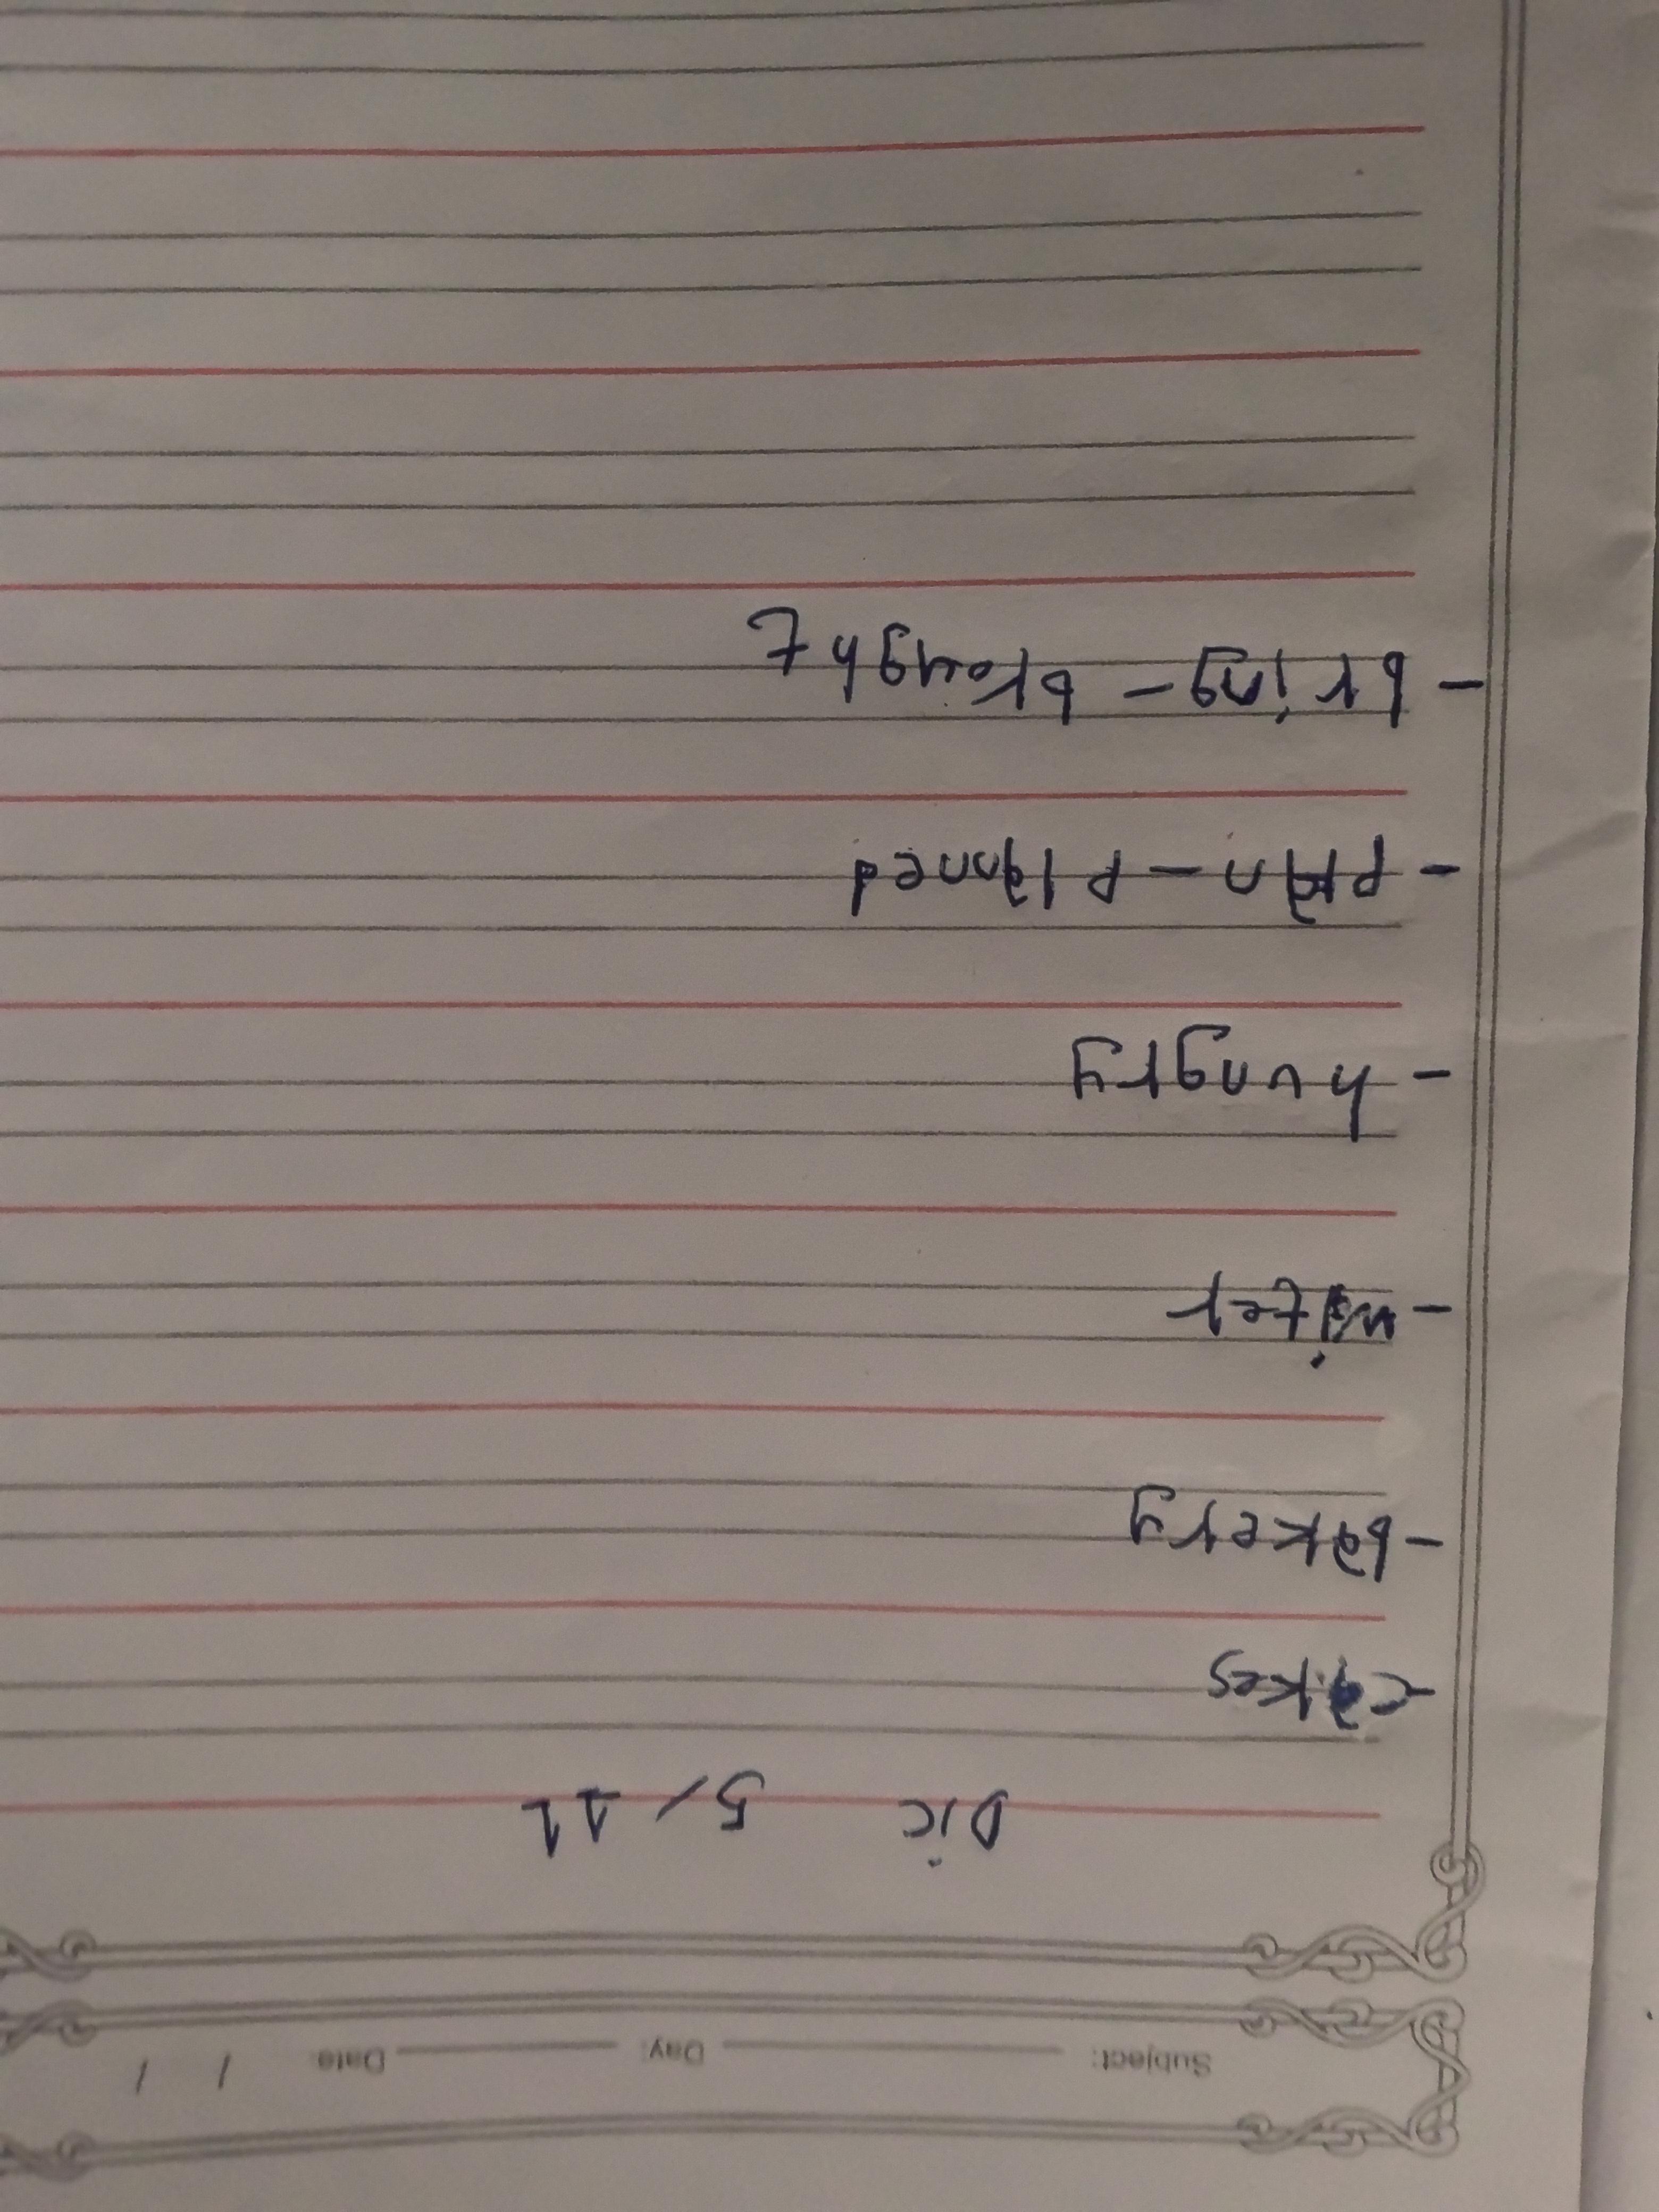 Subject: Day: Date: / /
Dic 5, 11
- cakes
- bakery
- witer
- hungry
- plan - planed
- bring - brought